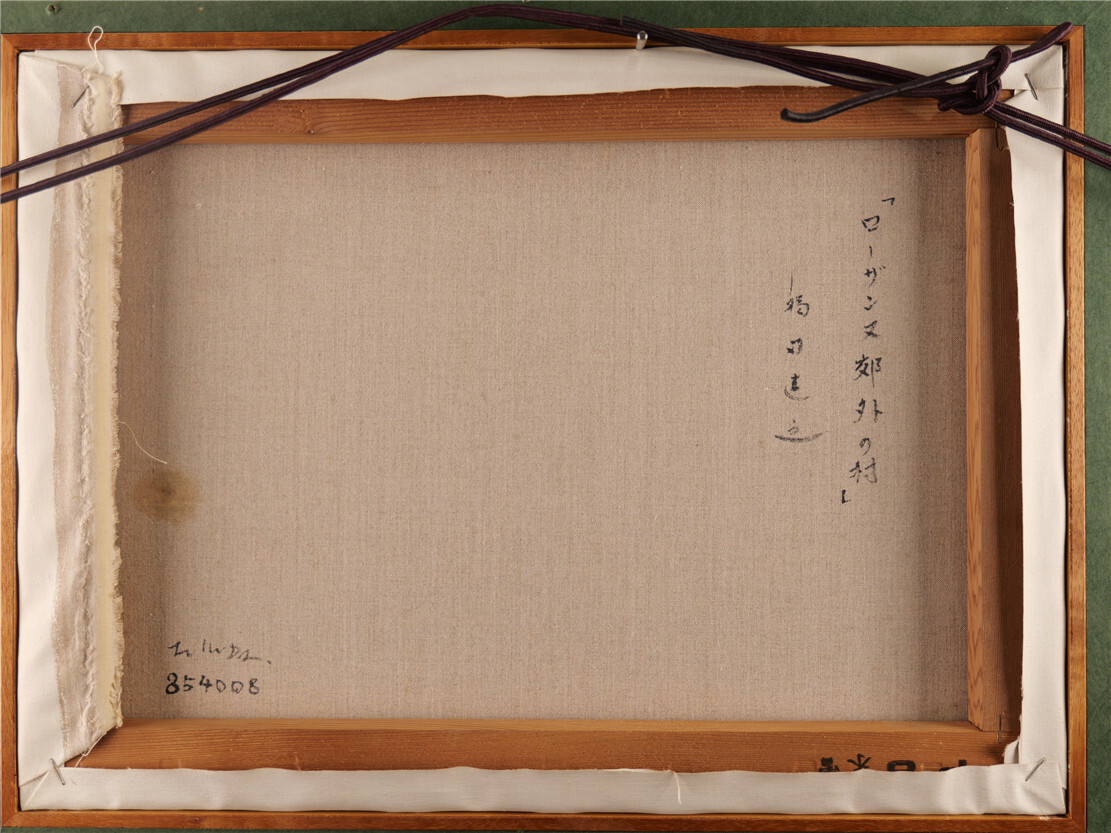 「ローザンヌ郊外の村」
福田建之
854008